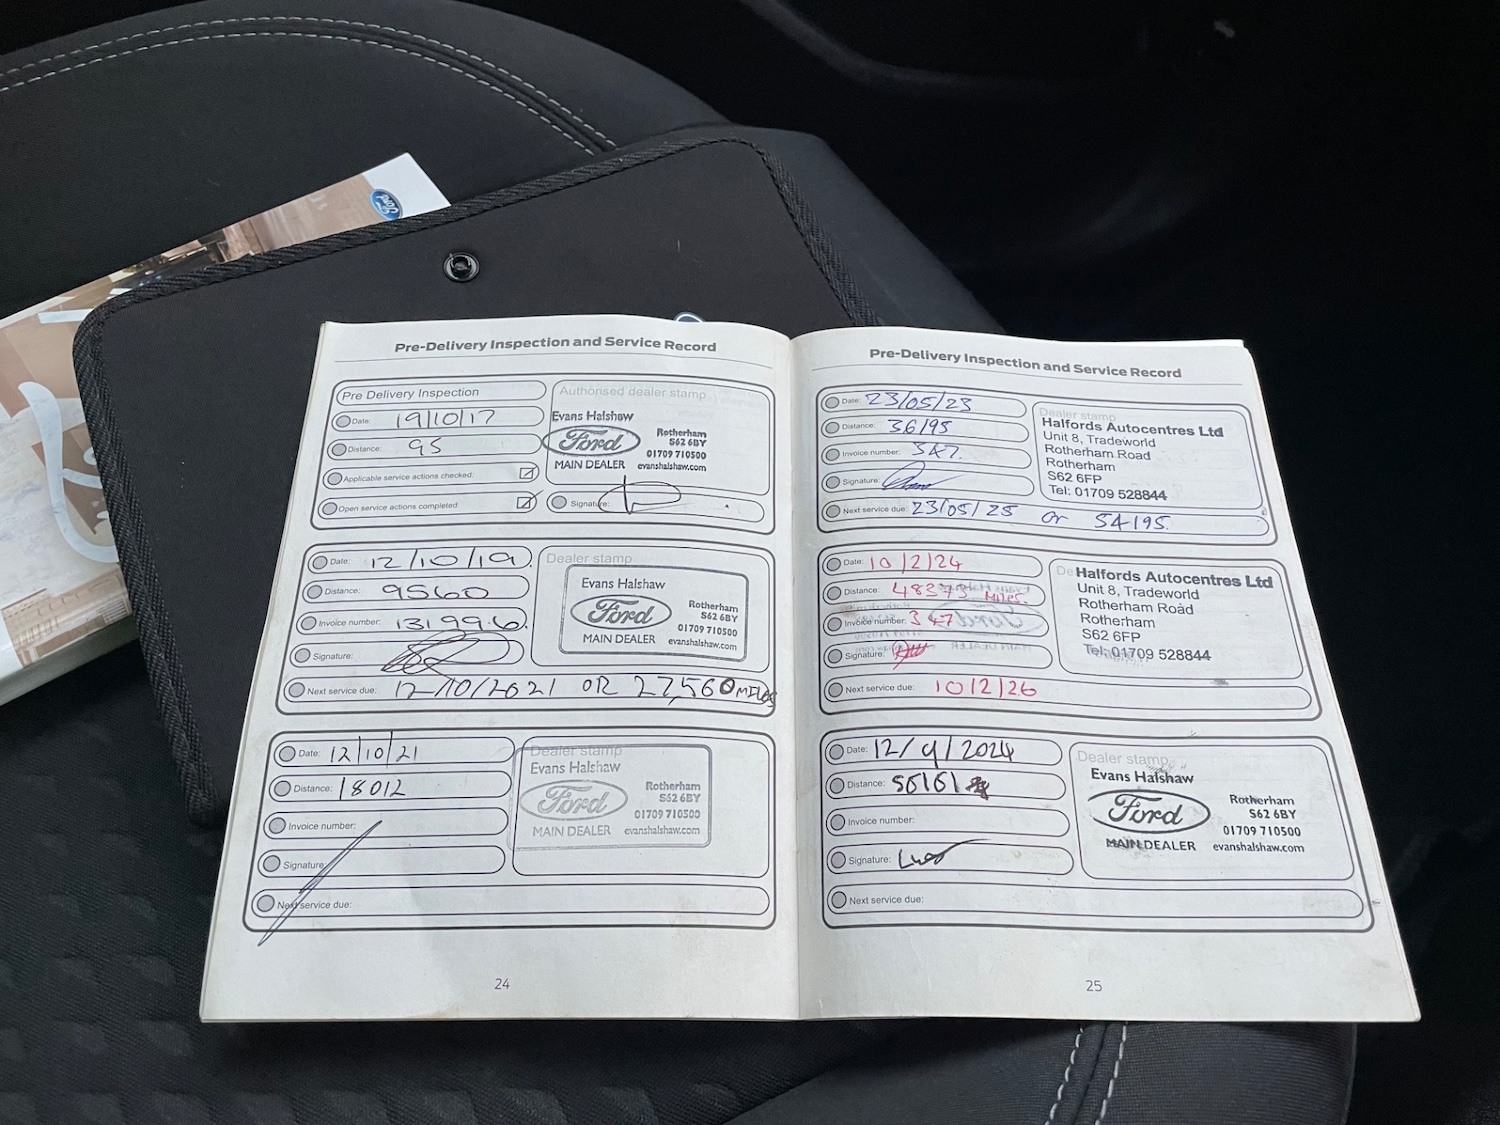 Ford
Pre-Delivery Inspection and Service Record
Pre Delivery Inspection
Date: 19/10/17
Distance: 95
Applicable service actions checked:
Open service actions completed:
Authorised dealer stamp
Evans Halshaw
Ford
MAIN DEALER
Rotherham
S62 6BY
01709 710500
evanshalshaw.com
Signature:
Date: 12/10/19
Distance: 9560
Invoice number: 131996.
Signature:
Next service due: 12/10/2021 OR 27,560 MILES
Dealer stamp
Evans Halshaw
Ford
MAIN DEALER
Rotherham
S62 6BY
01709 710500
evanshalshaw.com
Date: 12/10/21
Distance: 18012
Invoice number:
Signature:
Next service due:
Dealer stamp
Evans Halshaw
Ford
MAIN DEALER
Rotherham
S62 6BY
01709 710500
evanshalshaw.com
24
Pre-Delivery Inspection and Service Record
Date: 23/05/23
Distance: 36195
Invoice number: 347.
Signature:
Next service due: 23/05/25 or 54195.
Dealer stamp
Halfords Autocentres Ltd
Unit 8, Tradeworld
Rotherham Road
Rotherham
S62 6FP
Tel: 01709 528844
Date: 10/2/24
Distance: 48373 MILES.
Invoice number: 347
Signature:
Next service due: 10/2/26
Halfords Autocentres Ltd
Unit 8, Tradeworld
Rotherham Road
Rotherham
S62 6FP
Tel: 01709 528844
Date: 12/9/2024
Distance: 55151
Invoice number:
Signature:
Next service due:
Dealer stamp
Evans Halshaw
Ford
MAIN DEALER
Rotherham
S62 6BY
01709 710500
evanshalshaw.com
25